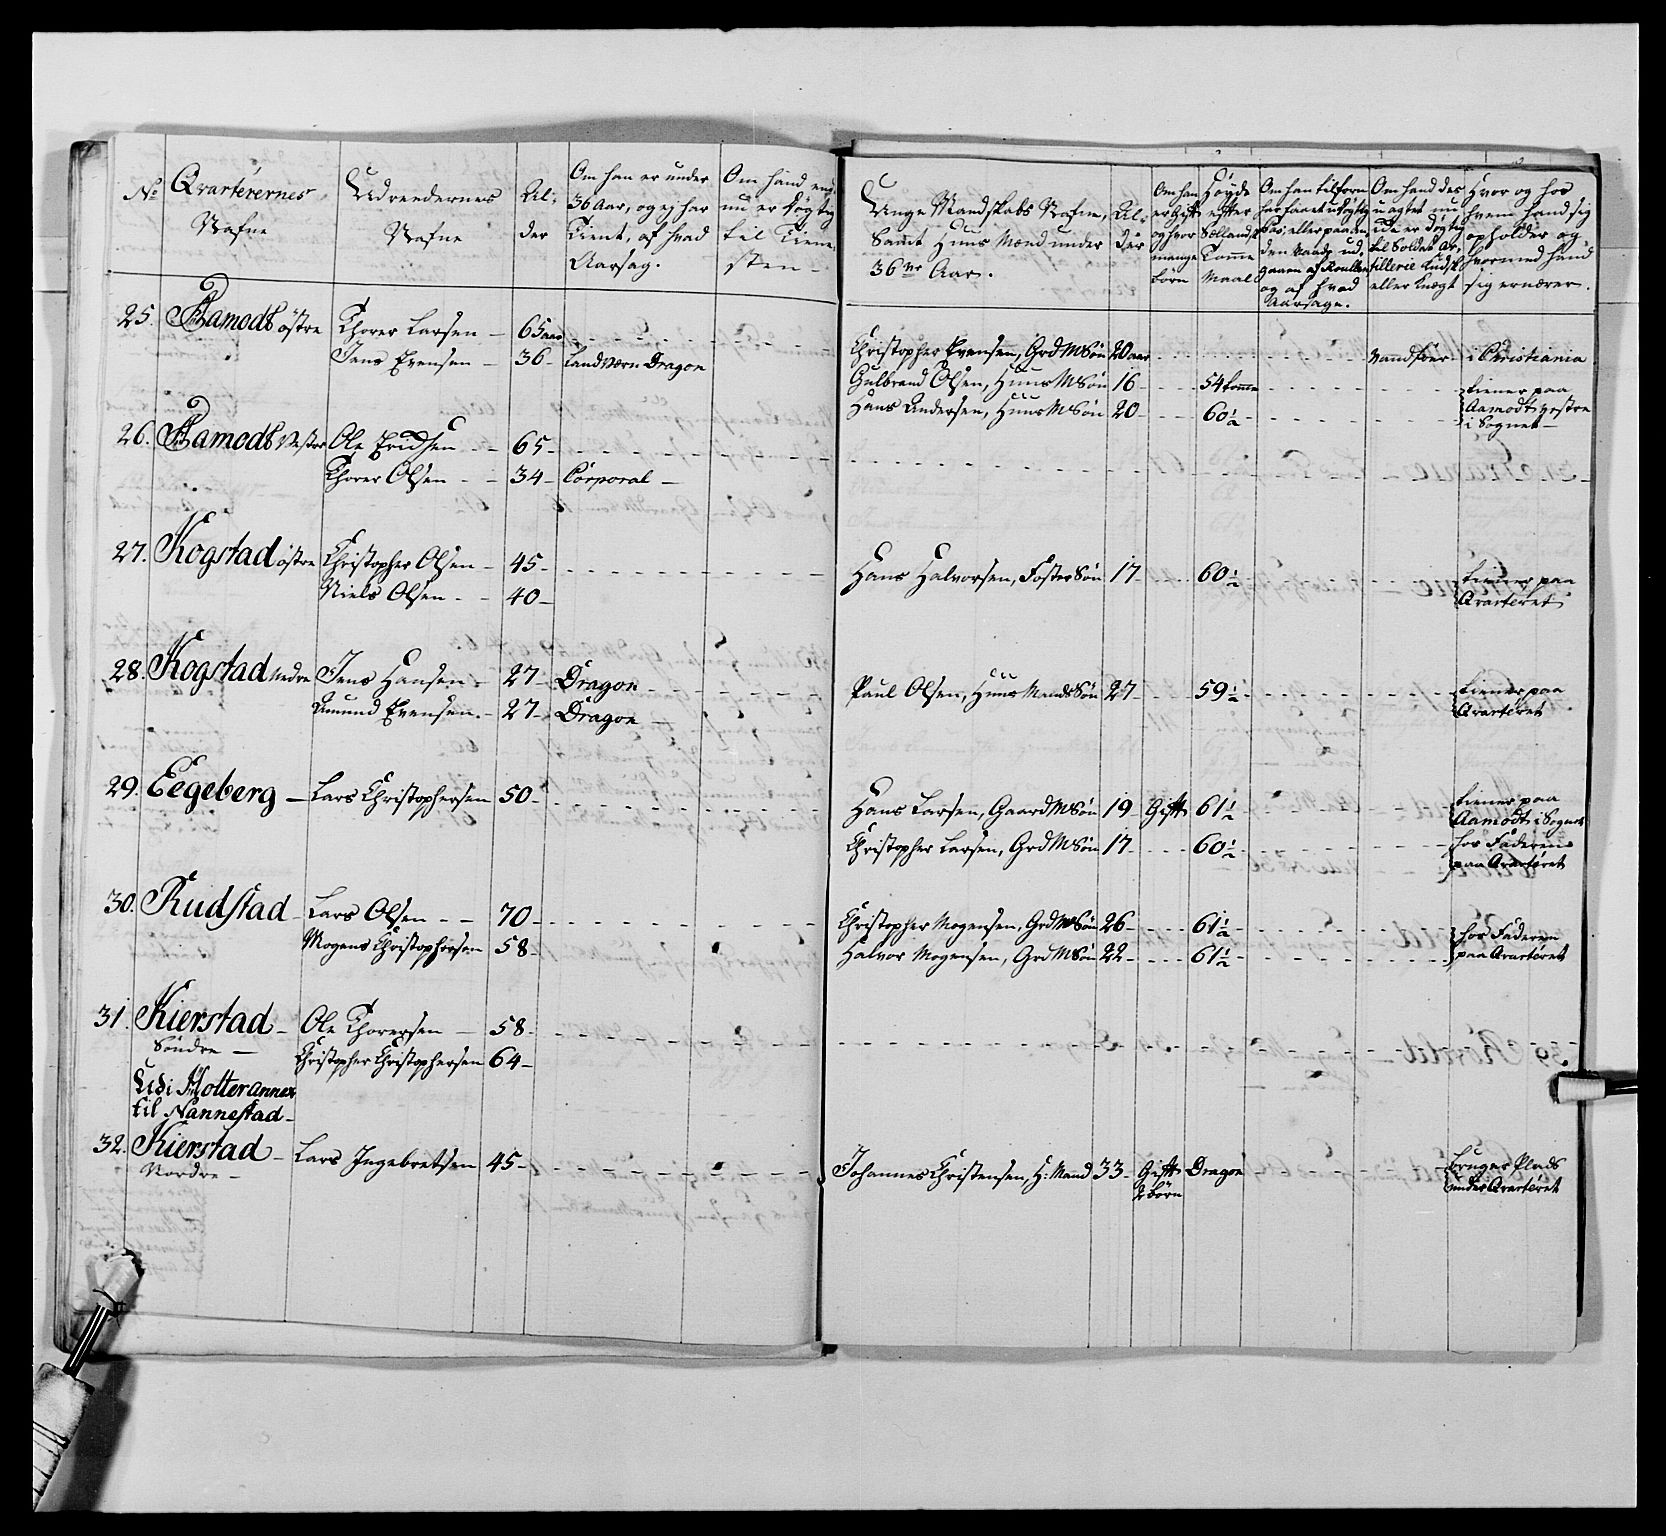 No Qvarterernes Nafne
Udreedernes Nafne
Al:
der
Om han er under
36 Aar, og ej har
Tient, af hvad
Aarsag.
Om hand end
nu er døgtig
til Tiene
sten
25. Aamodt østre Thorer Larsen 65 aar
Jens Evensen 36 Landværn Dragon
26. Aamodt Vestre Ole Eridsen 65
Thorer Olsen 34 Corporal
27. Kogstad østre Christopher Olsen 45
Niels Olsen 40
28. Kogstad Nedre Jens Hansen 27 Dragon
Amund Evensen 27 Dragon
29. Eegeberg Lars Christophersen 50
30. Rudstad Lars Olsen 70
Mogens Christophersen 58
31. Kierstad Ole Thorersen 58
Søndre Christopher Christophersen 64
Udi Holter annex
til Nannestad
32. Kierstad Lars Ingebretsen 45
Nordre
Unge Mandskabs Nafne,
Samt Huus Mænd under
36 Aar.
Al:
der
Om han
er Gift
og hvor
mange
børn
Høyde
efter
Sællandsk
Tomme
Maal
Om han tilforn
har faaet udøgtig
Pas, eller paa an
den Maade ud,
gaaen af Roullen
og af hvad
Aarsage.
Om hand des
uagtet nu
er døgtig
til Soldat Ar,
tillerie Kudsk
eller Knægt
Hvor og hos
hvem hand sig
opholder og
hvormed hand
sig ernærer.
Christopher Evensen, Grd M Søn 20 aar Vandfør i Christiania
Gulbrand Olsen, Huus M Søn 16 54 tomme tiener paa
Hans Andersen, Huus M Søn 20 60 1/2 Aamodt vestre
i Sognet
Hans Halvorsen, Foster Søn 17 60 1/2 tiener paa
Qvarteret
Paul Olsen, Huus Mands Søn 27 59 1/2 tiener paa
Qvarteret
Hans Larsen, Gaard M Søn 19 Gift 61 1/2 tiener paa
Aamodt i Sognet
Christopher Larsen, Grd M Søn 17 60 1/2 hos Faderen
paa Qvarteret
Christopher Mogensen, Grd M Søn 26 61 1/2 hos Faderen
Halvor Mogensen, Grd M Søn 22 61 1/2 paa Qvarteret
Johannes Christensen, H: Mand 33 Gift Dragon bruger Plads
2 børn under Qvarteret